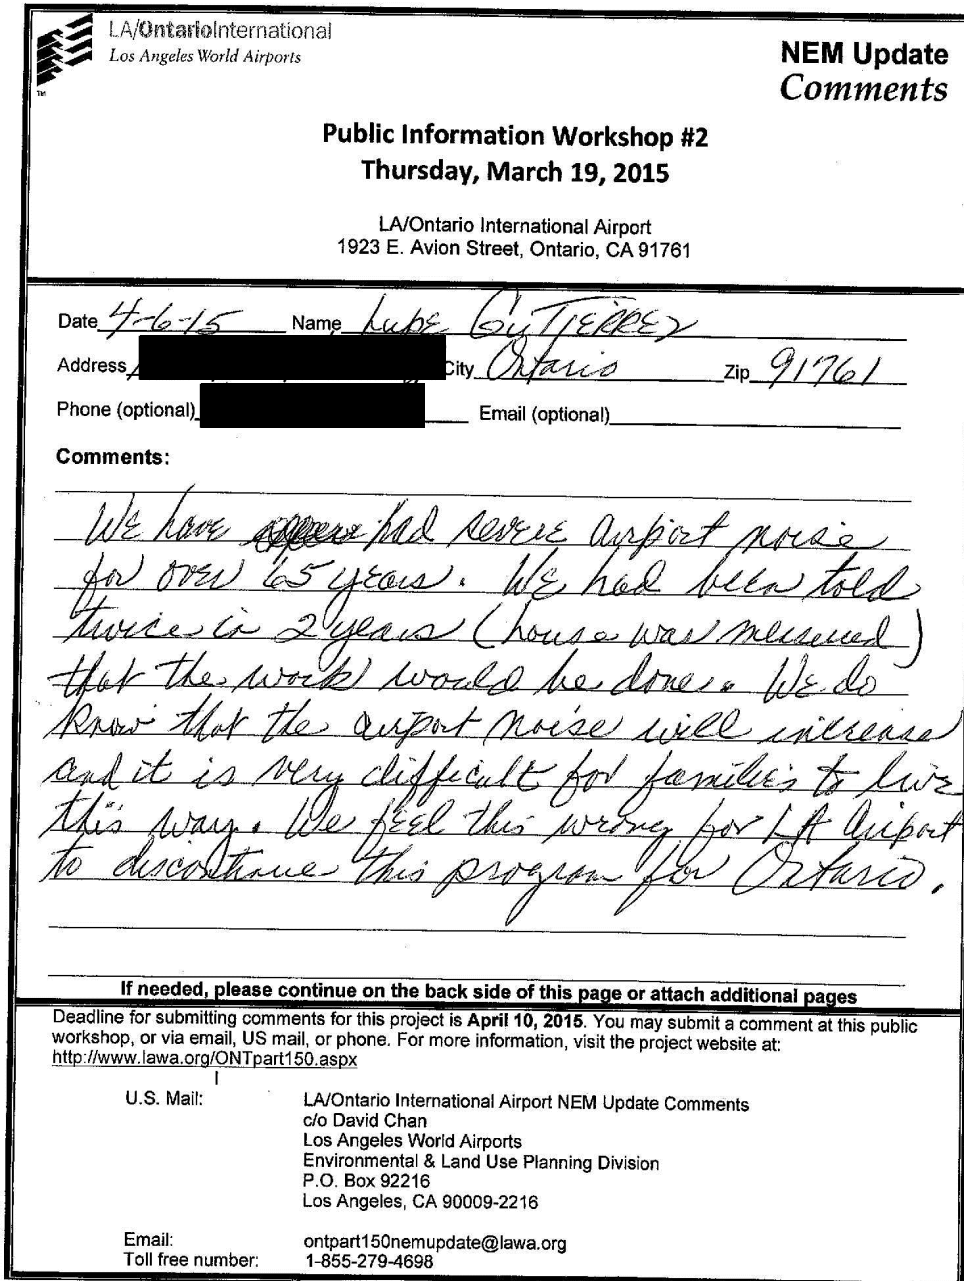 LA/OntarioInternational
Los Angeles World Airports
TM
NEM Update
Comments
Public Information Workshop #2
Thursday, March 19, 2015
LA/Ontario International Airport
1923 E. Avion Street, Ontario, CA 91761
Date 4-6-15 Name Lupe GuTIERREZ
Address City Ontario Zip 91761
Phone (optional) Email (optional)
Comments:
We have had severe airport noise
for over 65 years. We had been told
twice in 2 years (house was measured)
that the work would be done. We do
know that the airport noise will increase
and it is very difficult for families to live
this way. We feel this wrong for LA Airport
to discontinue this program for Ontario.
If needed, please continue on the back side of this page or attach additional pages
Deadline for submitting comments for this project is April 10, 2015. You may submit a comment at this public
workshop, or via email, US mail, or phone. For more information, visit the project website at:
http://www.lawa.org/ONTpart150.aspx
U.S. Mail: LA/Ontario International Airport NEM Update Comments
c/o David Chan
Los Angeles World Airports
Environmental & Land Use Planning Division
P.O. Box 92216
Los Angeles, CA 90009-2216
Email: ontpart150nemupdate@lawa.org
Toll free number: 1-855-279-4698